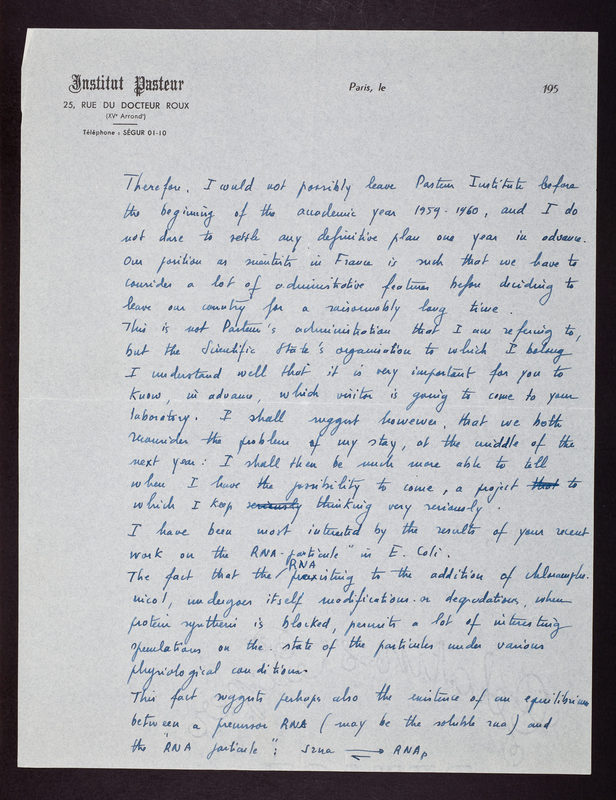 Institut Pasteur
25, RUE DU DOCTEUR ROUX
(XVe Arrondt)
Téléphone : SÉGUR 01-10
Paris, le 195
Therefore, I would not possibly leave Pasteur Institute before
the beginning of the academic year 1959-1960, and I do
not dare to settle any definitive plan one year in advance.
Our position as scientists in France is such that we have to
consider a lot of administrative features before deciding to
leave our country for a raisonnably long time.
This is not Pasteur's administration that I am refering to,
but the Scientific State's organisation to which I belong
I understand well that it is very important for you to
know, in advance, which visitor is going to come to your
laboratory. I shall suggest however, that we both
reconsider the problem of my stay, at the middle of the
next year: I shall then be much more able to tell
when I have the possibility to come, a project that to
which I keep seriously thinking very seriously.
I have been most interested by the results of your recent
work on the RNA-particule" in E. Coli.
The fact that the RNA preexisting to the addition of chloramphe-
nicol, undergoes itself modifications or degradations, when
protein synthesis is blocked, permits a lot of interesting
speculations on the state of the particules under various
physiological conditions.
This fact suggests perhaps also the existence of an equilibrium
between a precursor RNA (may be the soluble rna) and
the "RNA particule": srna ⇌ RNAp